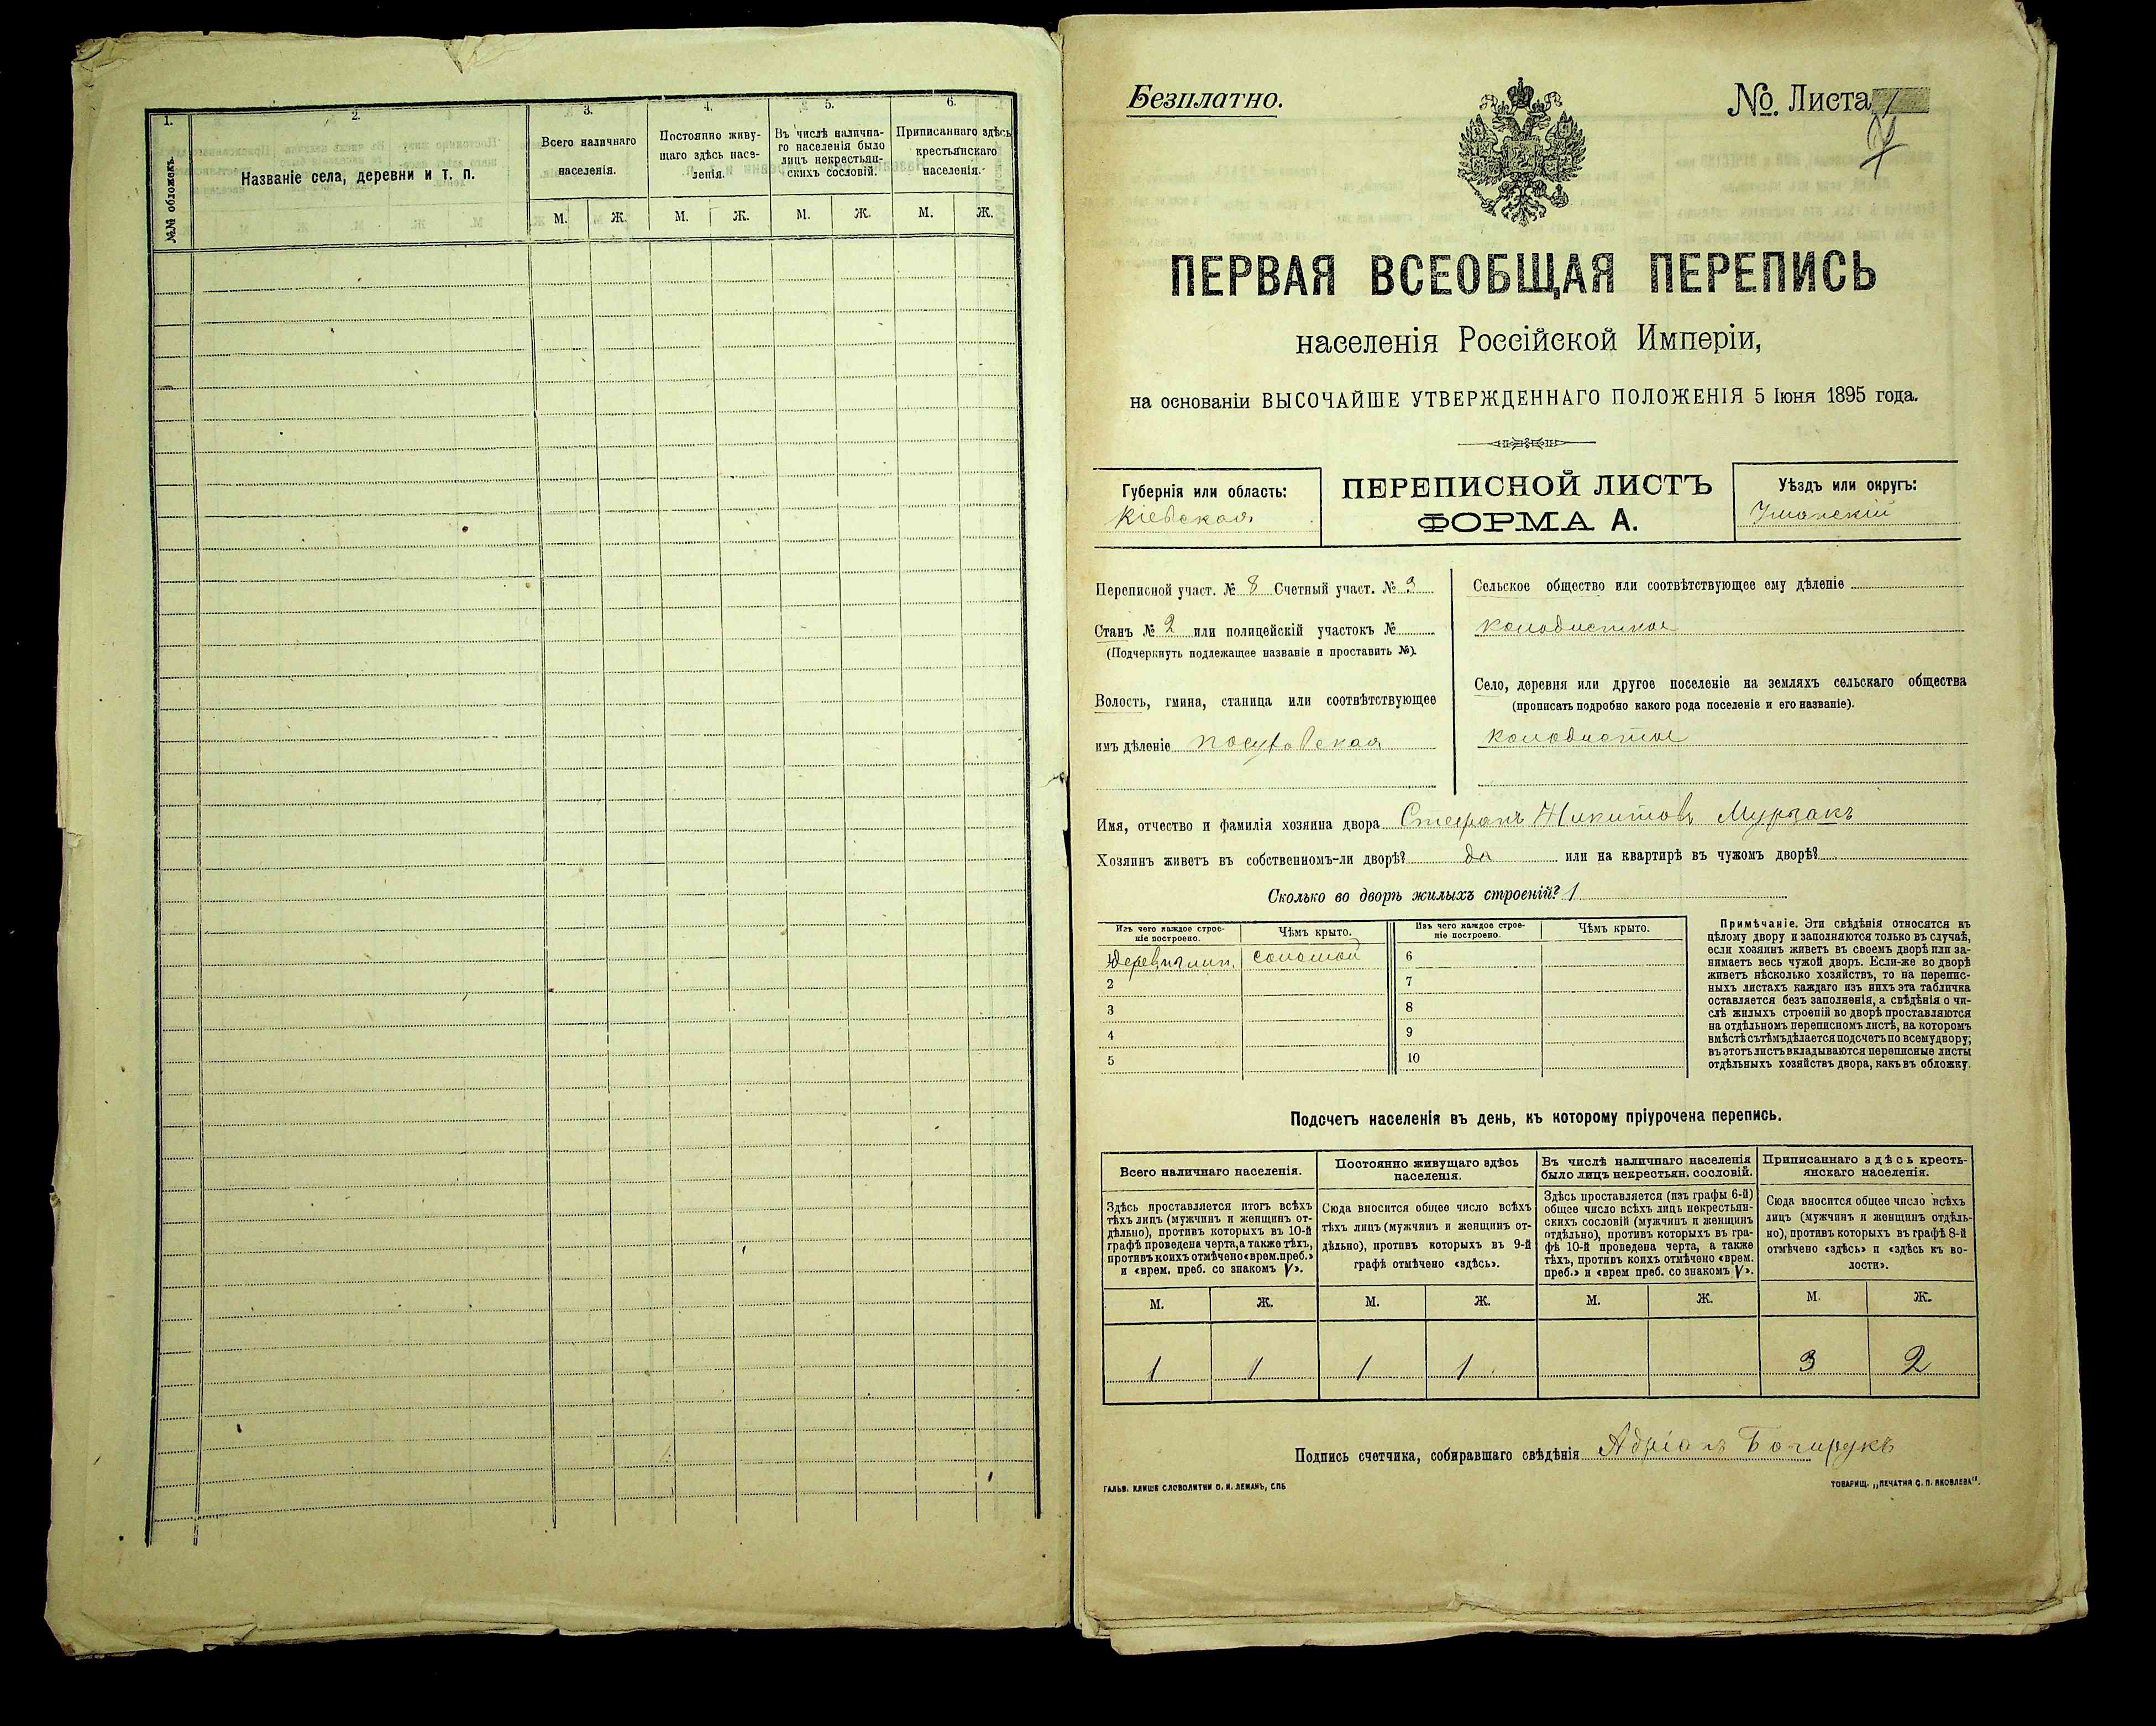 1.
№№ обложекъ.
2.
Названіе села, деревни и т. п.
3.
Всего наличнаго
населенія.
М. Ж.
4.
Постоянно живу-
щаго здѣсь насе-
ленія.
М. Ж.
5.
Въ числѣ налична-
го населенія было
лицъ некрестьян-
скихъ сословій.
М. Ж.
6.
Приписаннаго здѣсь
крестьянскаго
населенія.
М. Ж.
Безплатно.
№. Листа 1
ПЕРВАЯ ВСЕОБЩАЯ ПЕРЕПИСЬ
населенія Россійской Имперіи,
на основаніи ВЫСОЧАЙШЕ УТВЕРЖДЕННАГО ПОЛОЖЕНІЯ 5 Іюня 1895 года.
Губернія или область:
Кіевская
ПЕРЕПИСНОЙ ЛИСТЪ
ФОРМА А.
Уѣздъ или округъ:
Уманскій
Переписной участ. № 8 Счетный участ. № 3
Станъ № 2 или полицейскій участокъ №
(Подчеркнуть подлежащее названіе и проставить №).
Волость, гмина, станица или соотвѣтствующее
имъ дѣленіе
Сельское общество или соотвѣтствующее ему дѣленіе
колодистое
Село, деревня или другое поселеніе на земляхъ сельскаго общества
(прописать подробно какого рода поселеніе и его названіе).
колодистое
Имя, отчество и фамилія хозяина двора Стефанъ Никитовъ Мурзакъ
Хозяинъ живетъ въ собственномъ-ли дворѣ? да или на квартирѣ въ чужомъ дворѣ?
Сколько во дворѣ жилыхъ строеній? 1
Изъ чего каждое строе-
ніе построено.
Чѣмъ крыто.
Изъ чего каждое строе-
ніе построено.
Чѣмъ крыто.
1 соломой 6
2 7
3 8
4 9
5 10
Примѣчаніе. Эти свѣдѣнія относятся къ
цѣлому двору и заполняются только въ случаѣ,
если хозяинъ живетъ въ своемъ дворѣ или за-
нимаетъ весь чужой дворъ. Если-же во дворѣ
живетъ нѣсколько хозяйствъ, то на перепис-
ныхъ листахъ каждаго изъ нихъ эта табличка
оставляется безъ заполненія, а свѣдѣнія о чи-
слѣ жилыхъ строеній во дворѣ проставляются
на отдѣльномъ переписномъ листѣ, на которомъ
вмѣстѣ съ тѣмъ дѣлается подсчетъ по всему двору;
въ этотъ листъ вкладываются переписные листы
отдѣльныхъ хозяйствъ двора, какъ въ обложку.
Подсчетъ населенія въ день, къ которому пріурочена перепись.
Всего наличнаго населенія.
Здѣсь проставляется итогъ всѣхъ
тѣхъ лицъ (мужчинъ и женщинъ от-
дѣльно), противъ которыхъ въ 10-й
графѣ проведена черта, а также тѣхъ,
противъ коихъ отмѣчено «врем. преб.»
и «врем. преб. со знакомъ V».
М. Ж.
1 1
Постоянно живущаго здѣсь
населенія.
Сюда вносится общее число всѣхъ
тѣхъ лицъ (мужчинъ и женщинъ от-
дѣльно), противъ которыхъ въ 9-й
графѣ отмѣчено «здѣсь».
М. Ж.
1 1
Въ числѣ наличнаго населенія
было лицъ некрестьян. сословій.
Здѣсь проставляется (изъ графы 6-й)
общее число всѣхъ лицъ некрестьян-
скихъ сословій (мужчинъ и женщинъ
отдѣльно), противъ которыхъ въ гра-
фѣ 10-й проведена черта, а также
тѣхъ, противъ коихъ отмѣчено «врем.
преб.» и «врем преб. со знакомъ V».
М. Ж.
Приписаннаго здѣсь кресть-
янскаго населенія.
Сюда вносится общее число всѣхъ
лицъ (мужчинъ и женщинъ отдѣль-
но), противъ которыхъ въ графѣ 8-й
отмѣчено «здѣсь» и «здѣсь къ во-
лости».
М. Ж.
3 2
Подпись счетчика, собиравшаго свѣдѣнія Адріанъ
ГАЛЬВ. КЛИШЕ СЛОВОЛИТНИ О. И. ЛЕМАНЪ, СПБ
ТОВАРИЩ. „ПЕЧАТНЯ С. П. ЯКОВЛЕВА".